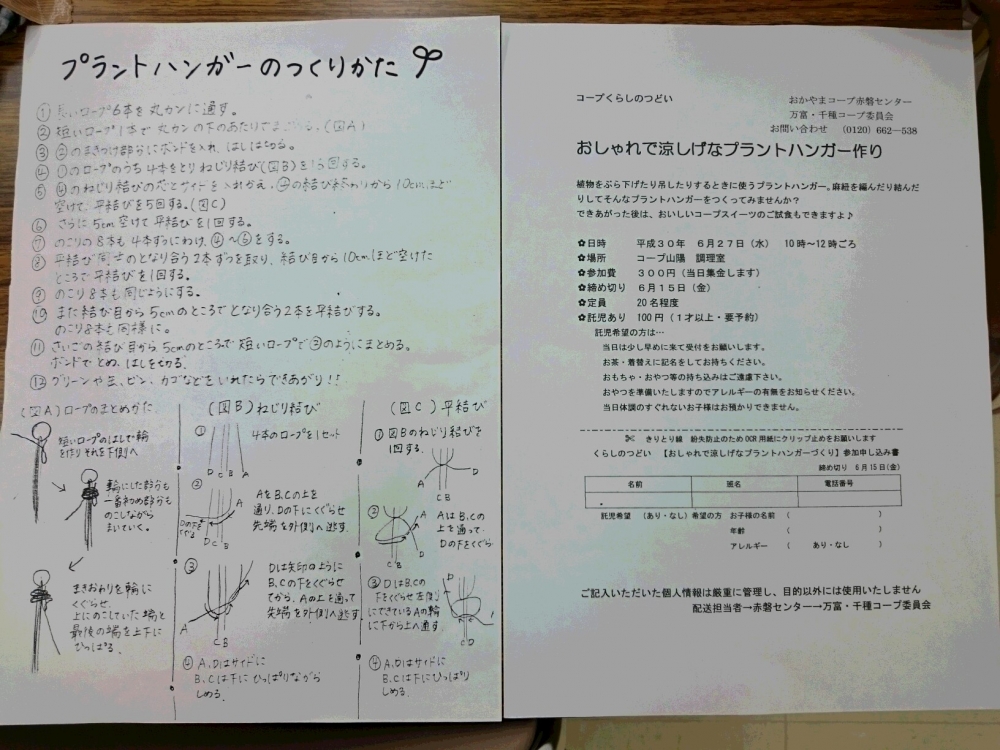 プラントハンガーのつくりかた
① 長いロープ6本を丸カンに通す。
② 短いロープ1本で丸カンの下のあたりでまとめる。(図A)
③ ②のまきつけ部分にボンドを入れ、はしは切る。
④ ①のロープのうち4本をとりねじり結び(図B)を15回する。
⑤ ④のねじり結びの芯とサイドを入れかえ、④の結び終わりから10cmほど
空けて、平結びを5回する。(図C)
⑥ さらに5cm空けて平結びを1回する。
⑦ のこりの8本も4本ずつにわけ、④~⑥をする。
⑧ 平結び同士のとなり合う2本ずつを取り、結び目から10cmほど空けた
ところで平結びを1回する。
⑨ のこり8本も同じようにする。
⑩ また結び目から5cmのところでとなり合う2本を平結びする。
のこり8本も同様に。
⑪ さいごの結び目から5cmのところで短いロープで②のようにまとめる。
ボンドでとめ、はしを切る。
⑫ グリーンや豆、ビン、カゴなどをいれたらできあがり!!
(図A)ロープのまとめかた
短いロープのはしで輪
を作りそれを下側へ
輪にした部分も
一番初め部分も
のこしながら
まいていく。
まきおわりを輪に
くぐらせ
上にのこしていた端と
最後の端を上下に
ひっぱる。
(図B)ねじり結び
① 4本のロープを1セット
D C B A
② AをB,Cの上を
通り、Dの下にくぐらせ
先端を外側へ逃す。
A
Dの下を
くぐる
D C B
③ Dは矢印のように
B,Cの下をくぐらせ
てから、Aの上を通って
先端を外側へ逃す。
A
C B
④ A,Dはサイドに
B,Cは下にひっぱりながら
しめる。
(図C)平結び
① 図Bのねじり結びを
1回する。
D
C B
② AはB,Cの
上を通って
Dの下をくぐらせ
A
D
C B
③ DはB,Cの
下をくぐらせ左側
にできているAの輪
に下から上へ通す
D
④ A,Dはサイドに
B,Cは下にひっぱり
しめる。
コープくらしのつどい
おかやまコープ赤磐センター
万富・千種コープ委員会
お問い合わせ (0120)662-538
おしゃれで涼しげなプラントハンガー作り
植物をぶら下げたり吊したりするときに使うプラントハンガー。麻紐を編んだり結んだ
りしてそんなプラントハンガーをつくってみませんか?
できあがった後は、おいしいコープスイーツのご試食もできますよ♪
✿日時 平成30年 6月27日(水) 10時~12時ごろ
✿場所 コープ山陽 調理室
✿参加費 300円(当日集金します)
✿締め切り 6月15日(金)
✿定員 20名程度
✿託児あり 100円(1才以上・要予約)
託児希望の方は…
当日は少し早めに来て受付をお願いします。
お茶・着替えに記名をしてお持ちください。
おもちゃ・おやつ等の持ち込みはご遠慮下さい。
おやつを準備いたしますのでアレルギーの有無をお知らせください。
当日体調のすぐれないお子様はお預かりできません。
きりとり線 紛失防止のためOCR用紙にクリップ止めをお願いします
くらしのつどい 【おしゃれで涼しげなプラントハンガーづくり】参加申し込み書
締め切り 6月15日(金)
名前 班名 電話番号
託児希望 (あり・なし)希望の方 お子様の名前 ( )
年齢 ( )
アレルギー ( あり・なし )
ご記入いただいた個人情報は厳重に管理し、目的以外には使用いたしません
配送担当者→赤磐センター→万富・千種コープ委員会